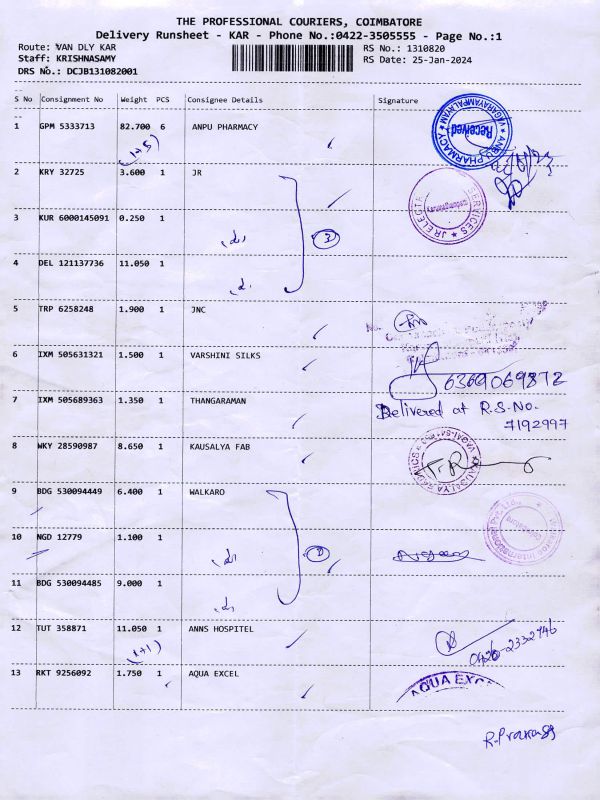 THE PROFESSIONAL COURIERS, COIMBATORE
Delivery Runsheet - KAR - Phone No.:0422-3505555 - Page No.:1
Route: VAN DLY KAR RS No.: 1310820
Staff: KRISHNASAMY RS Date: 25-Jan-2024
DRS No.: DCJB131082001
S No Consignment No Weight PCS Consignee Details Signature
1 GPM 5333713 82.700 6 ANPU PHARMACY
(1+5)
Received
ANBU PHARMACY
2 KRY 32725 3.600 1 JR
SERVICES ★ JR ELEGTA
3 KUR 6000145091 0.250 1
3
4 DEL 121137736 11.050 1
5 TRP 6258248 1.900 1 JNC
6 IXM 505631321 1.500 1 VARSHINI SILKS
6369069872
7 IXM 505689363 1.350 1 THANGARAMAN
Delivered at R.S.No.
7192997
8 WKY 28590987 8.650 1 KAUSALYA FAB
T.R
9 BDG 530094449 6.400 1 WALKARO
10 NGD 12779 1.100 1
11 BDG 530094485 9.000 1
12 TUT 358871 11.050 1 ANNS HOSPITEL
(1+1)
0426-2332946
13 RKT 9256092 1.750 1 AQUA EXCEL
AQUA EXCEL